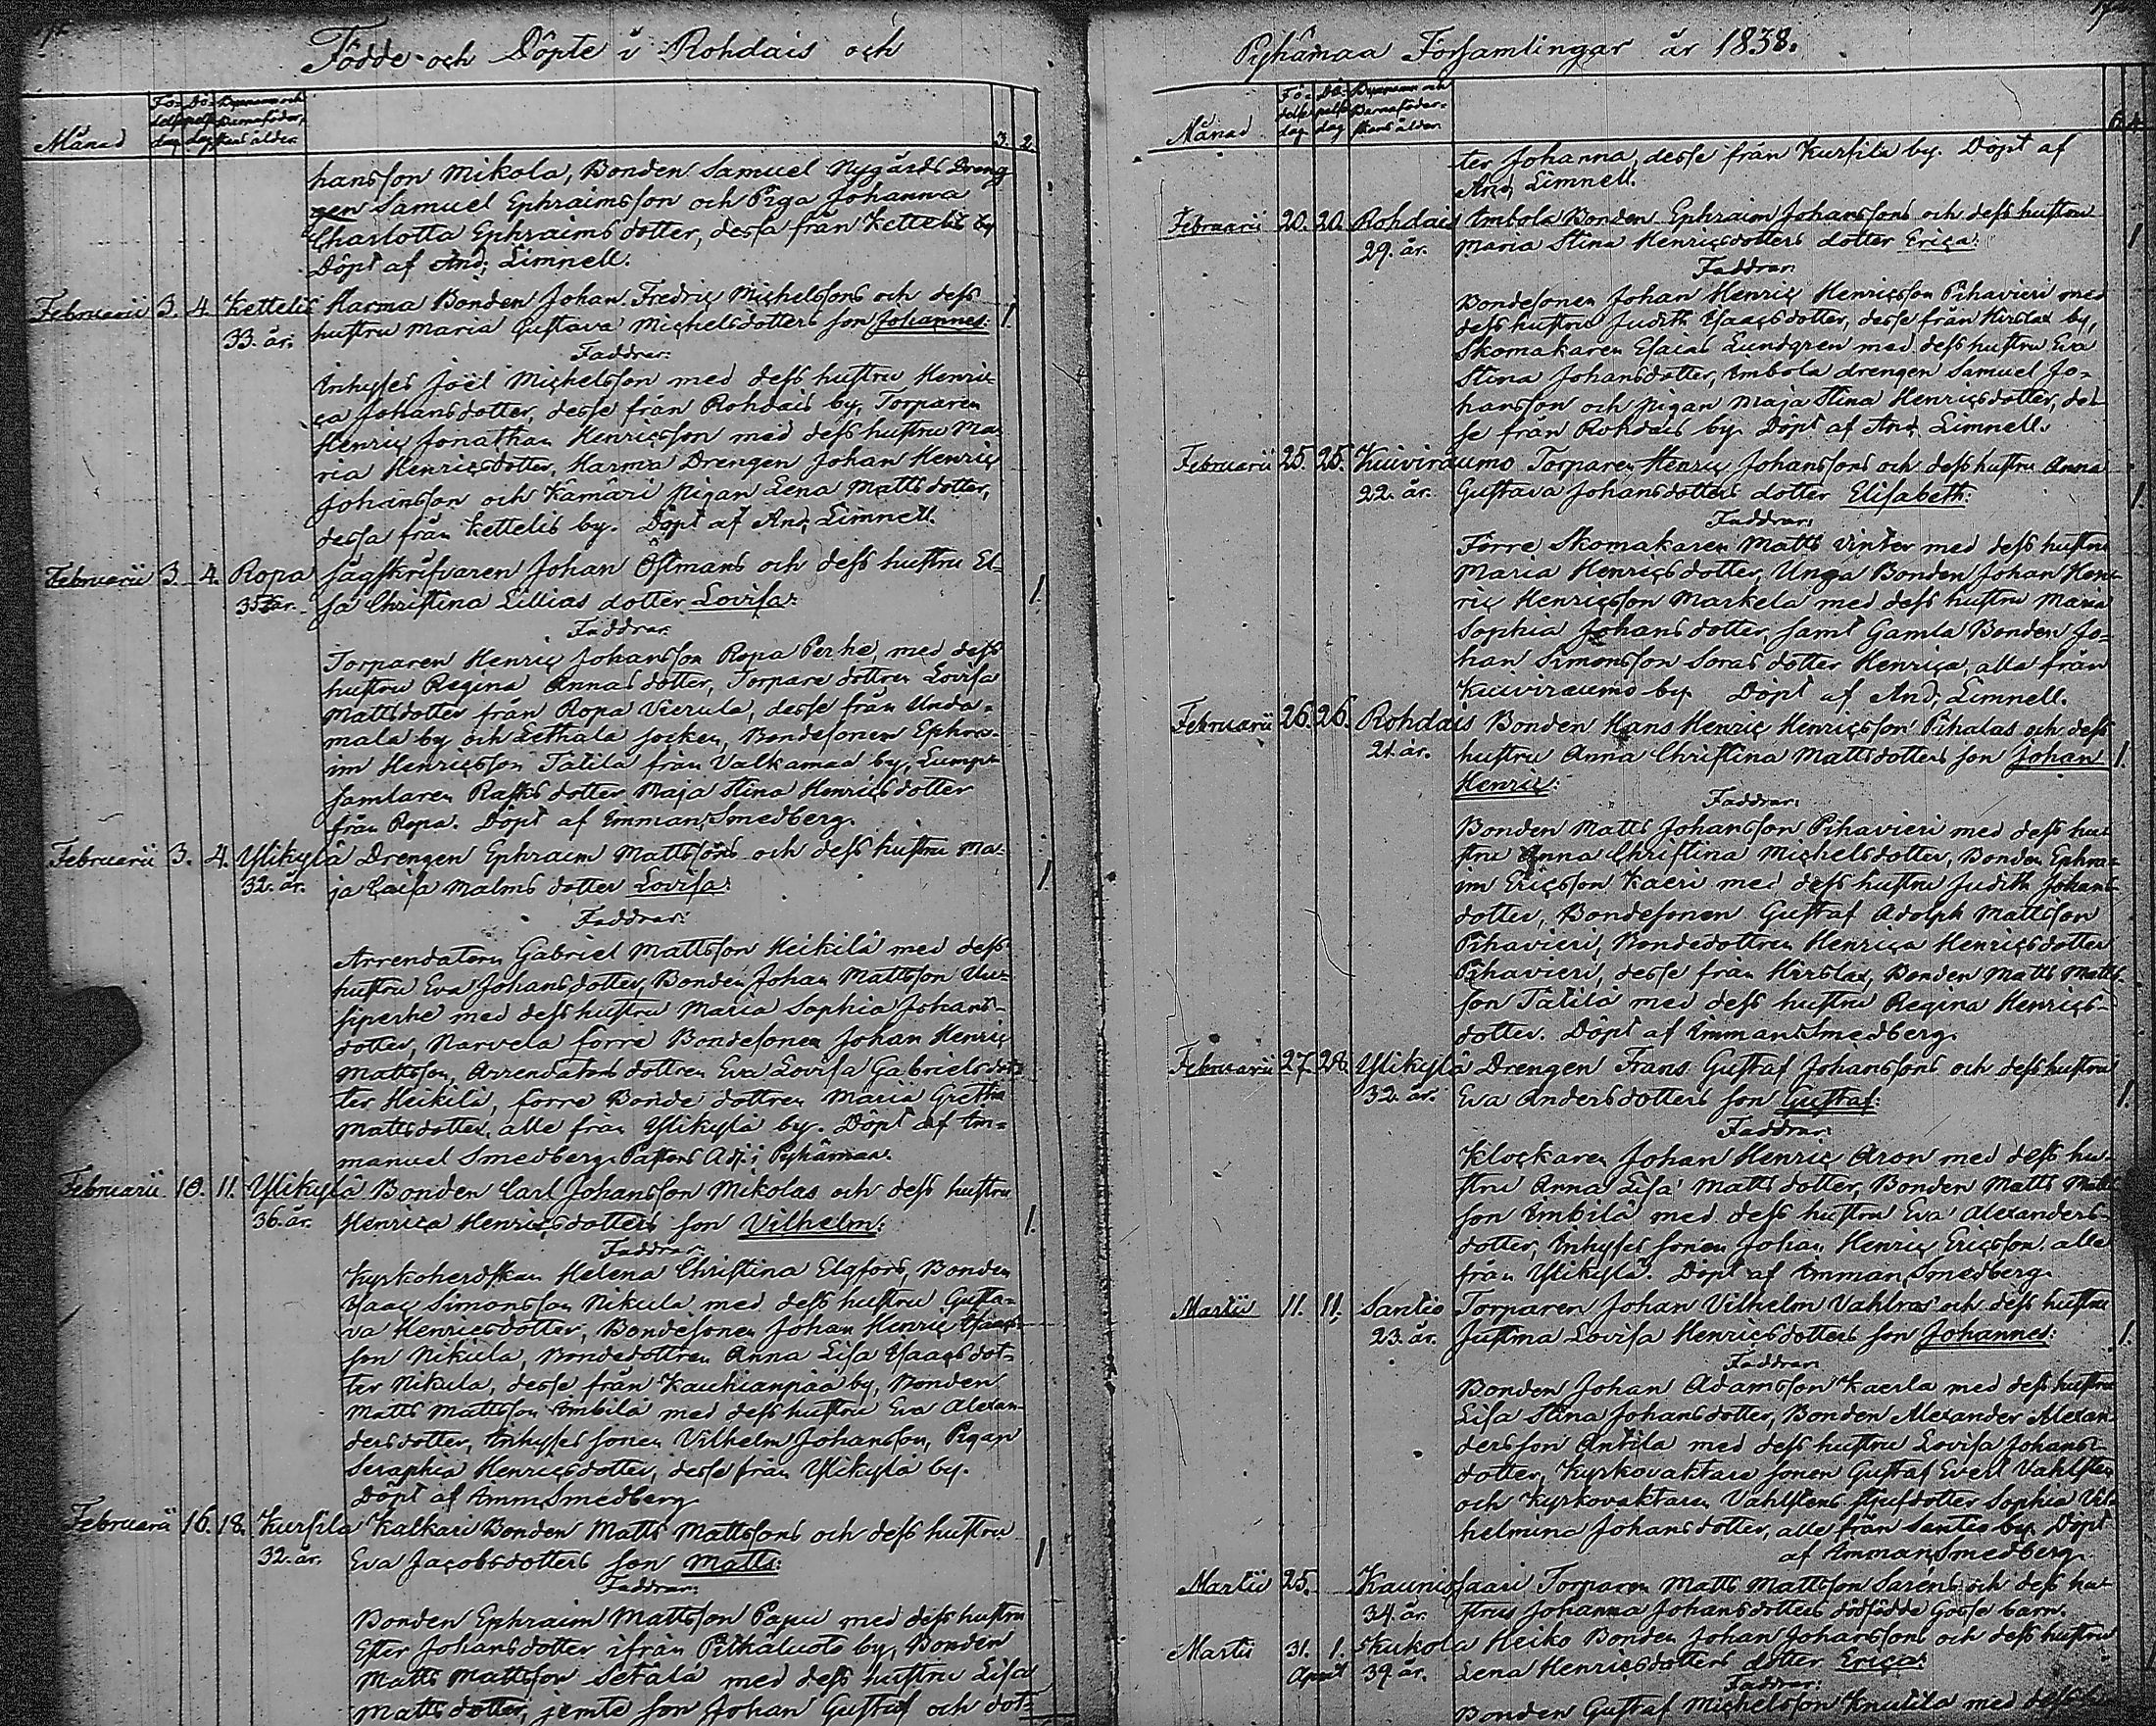 Födde och Döpte i Rohdais och
Månad Fö- delse dag Dö- pelse dag Bynamn och Barnaföder- skans ålder. 3. 2.
hansson Mikola, Bonden Samuel Nygårds Dreng
gen Samuel Ephraimsson och Piga Johanna
Charlotta Ephraims dotter, dessa från Kettelis by
Döpt af And; Limnell.
Februarii 3. 4. Kettelis Karma Bonden Johan Fredric Michelssons och dess
33. år. hustru Maria Gustava Michelsdotters son Johannes: 1.
Faddrar:
Inhyses Joël Michelsson med dess hustru Henri-
ca Johansdotter, desse från Rohdais by, Torparen
Henric Jonathan Henricsson med dess hustru Ma-
ria Henricsdotter, Karma Drengen Johan Henric
Johansson och Kämäri pigan Lena Mattsdotter,
dessa från Kettelis by. Döpt af And; Limnell.
Februarii 3. 4. Ropa Sågskrifvaren Johan Östmans och dess hustru El-
35 år. sa Christina Lillias dotter Lovisa: 1
Faddrar:
Torparen Henric Johansson Ropa Perhe, med dess
hustru Regina Annas dotter, Torpare dottren Lovisa
Mattsdotter från Ropa Vierula, desse från Unda-
mala by och Lethala socken, Bondesonen Ephra-
im Henricsson Tätilä från Valkamaa by, Lump-
samlaren Rasks dotter Maja Stina Henricsdotter
från Ropa. Döpt af Emman; Smedberg.
Februarii 3. 4. Ylikylä Drengen Ephraim Mattssons och dess hustru Ma-
32. år. ja Caisa Malms dotter Lovisa: 1
Faddrar:
Arrendatorn Gabriel Mattsson Heikilä med dess
hustru Eva Johansdotter, Bonden Johan Mattsson Uu-
siperhe med dess hustru Maria Sophia Johans-
dotter, Narvela förre Bondesonen Johan Henric
Mattsson, Arrendators dottren Eva Lovisa Gabrielsdot-
ter Heikilä, förre Bonde dottren Maria Gretha
Mattsdotter, alle från Ylikylä by. Döpt af Im-
manuel Smedberg. Pastors Adj: i Pyhämaa.
Februarii 10. 11. Ylikylä Bonden Carl Johansson Mikolas och dess hustru
36. år. Henrica Henricsdotters son Vilhelm: 1.
Faddrar:
Kyrkoherdskan Helena Christina Elgfors, Bonden
Ysaac Simonsson Nikula med dess hustru Gusta-
va Henricsdotter, Bondesonen Johan Henric Ysaacs-
son Nikula, Bondedottren Anna Lisa Ysaacsdot-
ter Nikula, desse från Kauhianpää by, Bonden
Matts Mattsson Imbilä med dess hustru Eva Alexan-
dersdotter, Inhyses sonen Vilhelm Johansson, Pigan
Seraphia Henricsdotter, desse från Ylikylä by.
Döpt af Imm; Smedberg
Februarii 16. 18. Kursila Kalkari Bonden Matts Mattssons och dess hustru
32. år. Eva Jacobsdotters son Matts: 1
Faddrar:
Bonden Ephraim Mattsson Papu med dess hustru
Ester Johansdotter ifrån Pitkäluoto by, Bonden
Matts Mattsson Setälä med dess hustru Lisa
Mattsdotter, jemte son Johan Gustaf och dot-
Pyhämaa Församlingar år 1838.
Månad Fö- delse dag Dö- pelse dag Bynamn och Barnaföder- skans ålder
ter Johanna, desse från Kursila by. Döpt af
And; Limnell.
Februarii 20. 20. Rohdais Imbola Bonden Ephraim Johanssons och dess hustru
29. år. Maria Stina Henricsdotters dotter Erica: 1
Faddrar:
Bondesonen Johan Henric Henricsson Pihavieri med
dess hustru Judith Ysaacsdotter, desse från Hirslax by,
Skomakaren Esaias Lundgren med dess hustru Eva
Stina Johansdotter, Imbola drengen Samuel Jo-
hansson och pigan Maja Stina Henricsdotter, des-
se från Rohdais by. Döpt af And; Limnell.
Februarii 25. 25. Kuiviraumo Torparen Henric Johanssons och dess hustru Anna
22. år. Gustava Johansdotters dotter Elisabeth: 1.
Faddrar:
Förre Skomakaren Matts Vinter med dess hustru
Maria Henricsdotter, Unga Bonden Johan Hen-
ric Henricsson Markela med dess hustru Maria
Sophia Johansdotter, samt Gamla Bonden Jo-
han Simonsson Soras dotter Henrica, alla från
Kuiviraumo by. Döpt af And; Limnell.
Februarii 26. 26. Rohdais Bonden Hans Henric Henricsson Pihalas och dess
21. år. hustru Anna Christina Mattsdotters son Johan 1.
Henric:
Faddrar:
Bonden Matts Johansson Pihavieri med dess hu-
stru Anna Christina Michelsdotter, Bonden Ephra-
im Ericsson Kaeri med dess hustru Judith Johans
dotter, Bondesonen Gustaf Adolph Mattsson
Pihavieri, Bondedottren Henrica Henricsdotter
Pihavieri, desse från Hirslax, Bonden Matts Matts-
son Tätilä med dess hustru Regina Henrics-
dotter. Döpt af Imman; Smedberg.
Februarii 27. 28. Ylikylä Drengen Frans Gustaf Johanssons och dess hustru
32. år. Eva Andersdotters son Gustaf: 1.
Faddrar:
Klockaren Johan Henric Aron med dess hu-
stru Anna Lisa Mattsdotter, Bonden Matts Matts
son Imbilä med dess hustru Eva Alexanders-
dotter, Inhyses sonen Johan Henric Ericsson: alle
från Ylikylä. Döpt af Imman; Smedberg.
Martii 11. 11. Santio Torparen Johan Vilhelm Vahlros och dess hustru
23. år. Justina Lovisa Henricsdotters son Johannes: 1.
Faddrar:
Bonden Johan Adamsson Kaerla med dess hustru
Lisa Stina Johansdotter, Bonden Alexander Alexan-
dersson Antila med dess hustru Lovisa Johans-
dotter, Kyrkovaktare sonen Gustaf Evert Vahlsten
och Kyrkovaktaren Vahlstens stjufdotter Sophia Vil-
helmina Johansdotter, alle från Santio by. Döpt
af Imman; Smedberg.
Martii 25. Kaunissaari Torparen Matts Mattsson Saréns och dess hu-
34. år. strus Johanna Johansdotters dödfödde Gosse barn.
Martii 31. 1. Kukola Heiko Bonden Johan Johanssons och dess hustru
April 39. år. Lena Henricsdotters dotter Erica:
Faddrar:
Bonden Gustaf Michelsson Knutila med dess